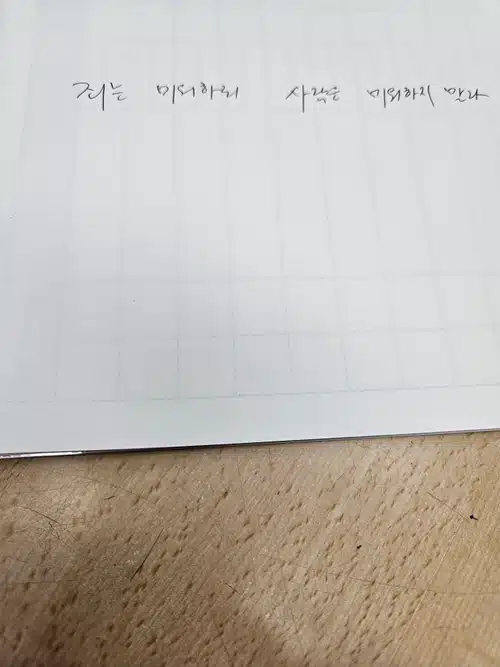 죄는 미워하되 사람은 미워하지 말라